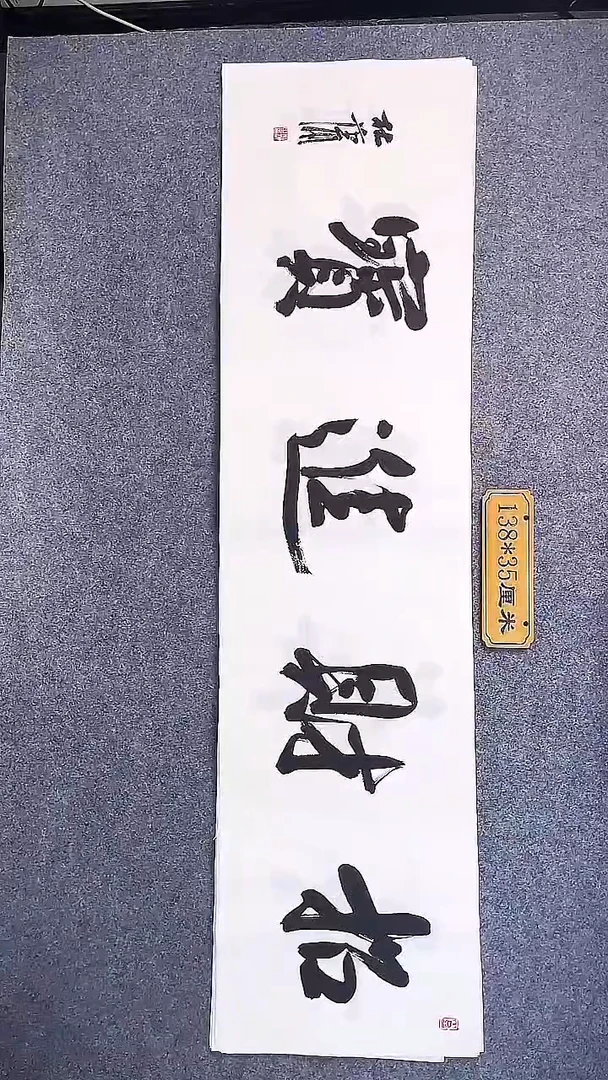 招財進寶
138*35厘米